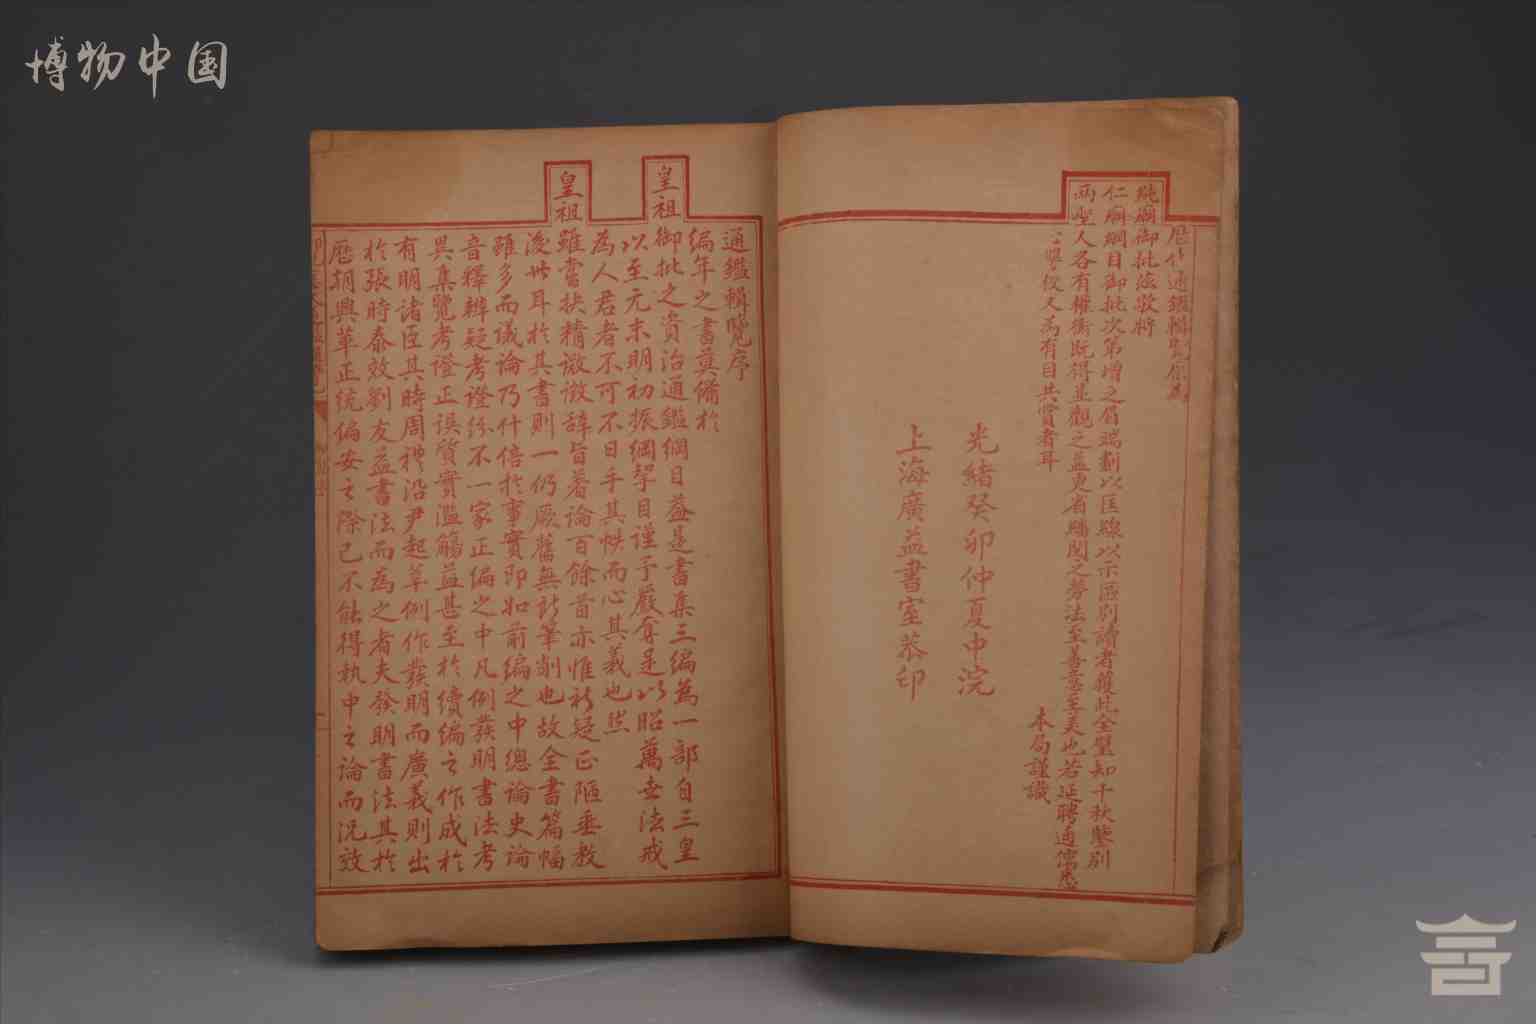 博物中国
歷代通鑑輯覽
純廟御批恭敬將
仁廟綱目御批次第增之眉端劃以匡線以示區別讀者獲此全璧知千秋鑒別
兩聖人各有權衡既得並觀之益更省繙閱之勞法至善意至美也若延聘通儒悉
心校又為有目共賞者耳
本局謹識
光緒癸卯仲夏中浣
上海廣益書室恭印
通鑑輯覽序
編年之書莫備於
皇祖御批之資治通鑑綱目蓋是書集三編為一部自三皇
以至元末明初振綱挈目謹予嚴奪足以昭萬世法戒
為人君者不可不日手其帙而心其義也然
皇祖雖嘗抉精微徵辭旨著論百餘首亦惟析疑正陋垂教
後世耳於其書則一仍厥舊無所筆削也故全書篇幅
雖多而議論乃什倍於事實即如前編之中總論史論
音釋辨疑考證紛不一家正編之中凡例發明書法考
異集覽考證正誤質實濫觴益甚至於續編之作成於
有明諸臣其時周禮沿尹起莘例作發明而廣義則出
於張時泰效劉友益書法而為之者夫發明書法其於
歷朝興革正統偏安之際已不能得執中之論而況效